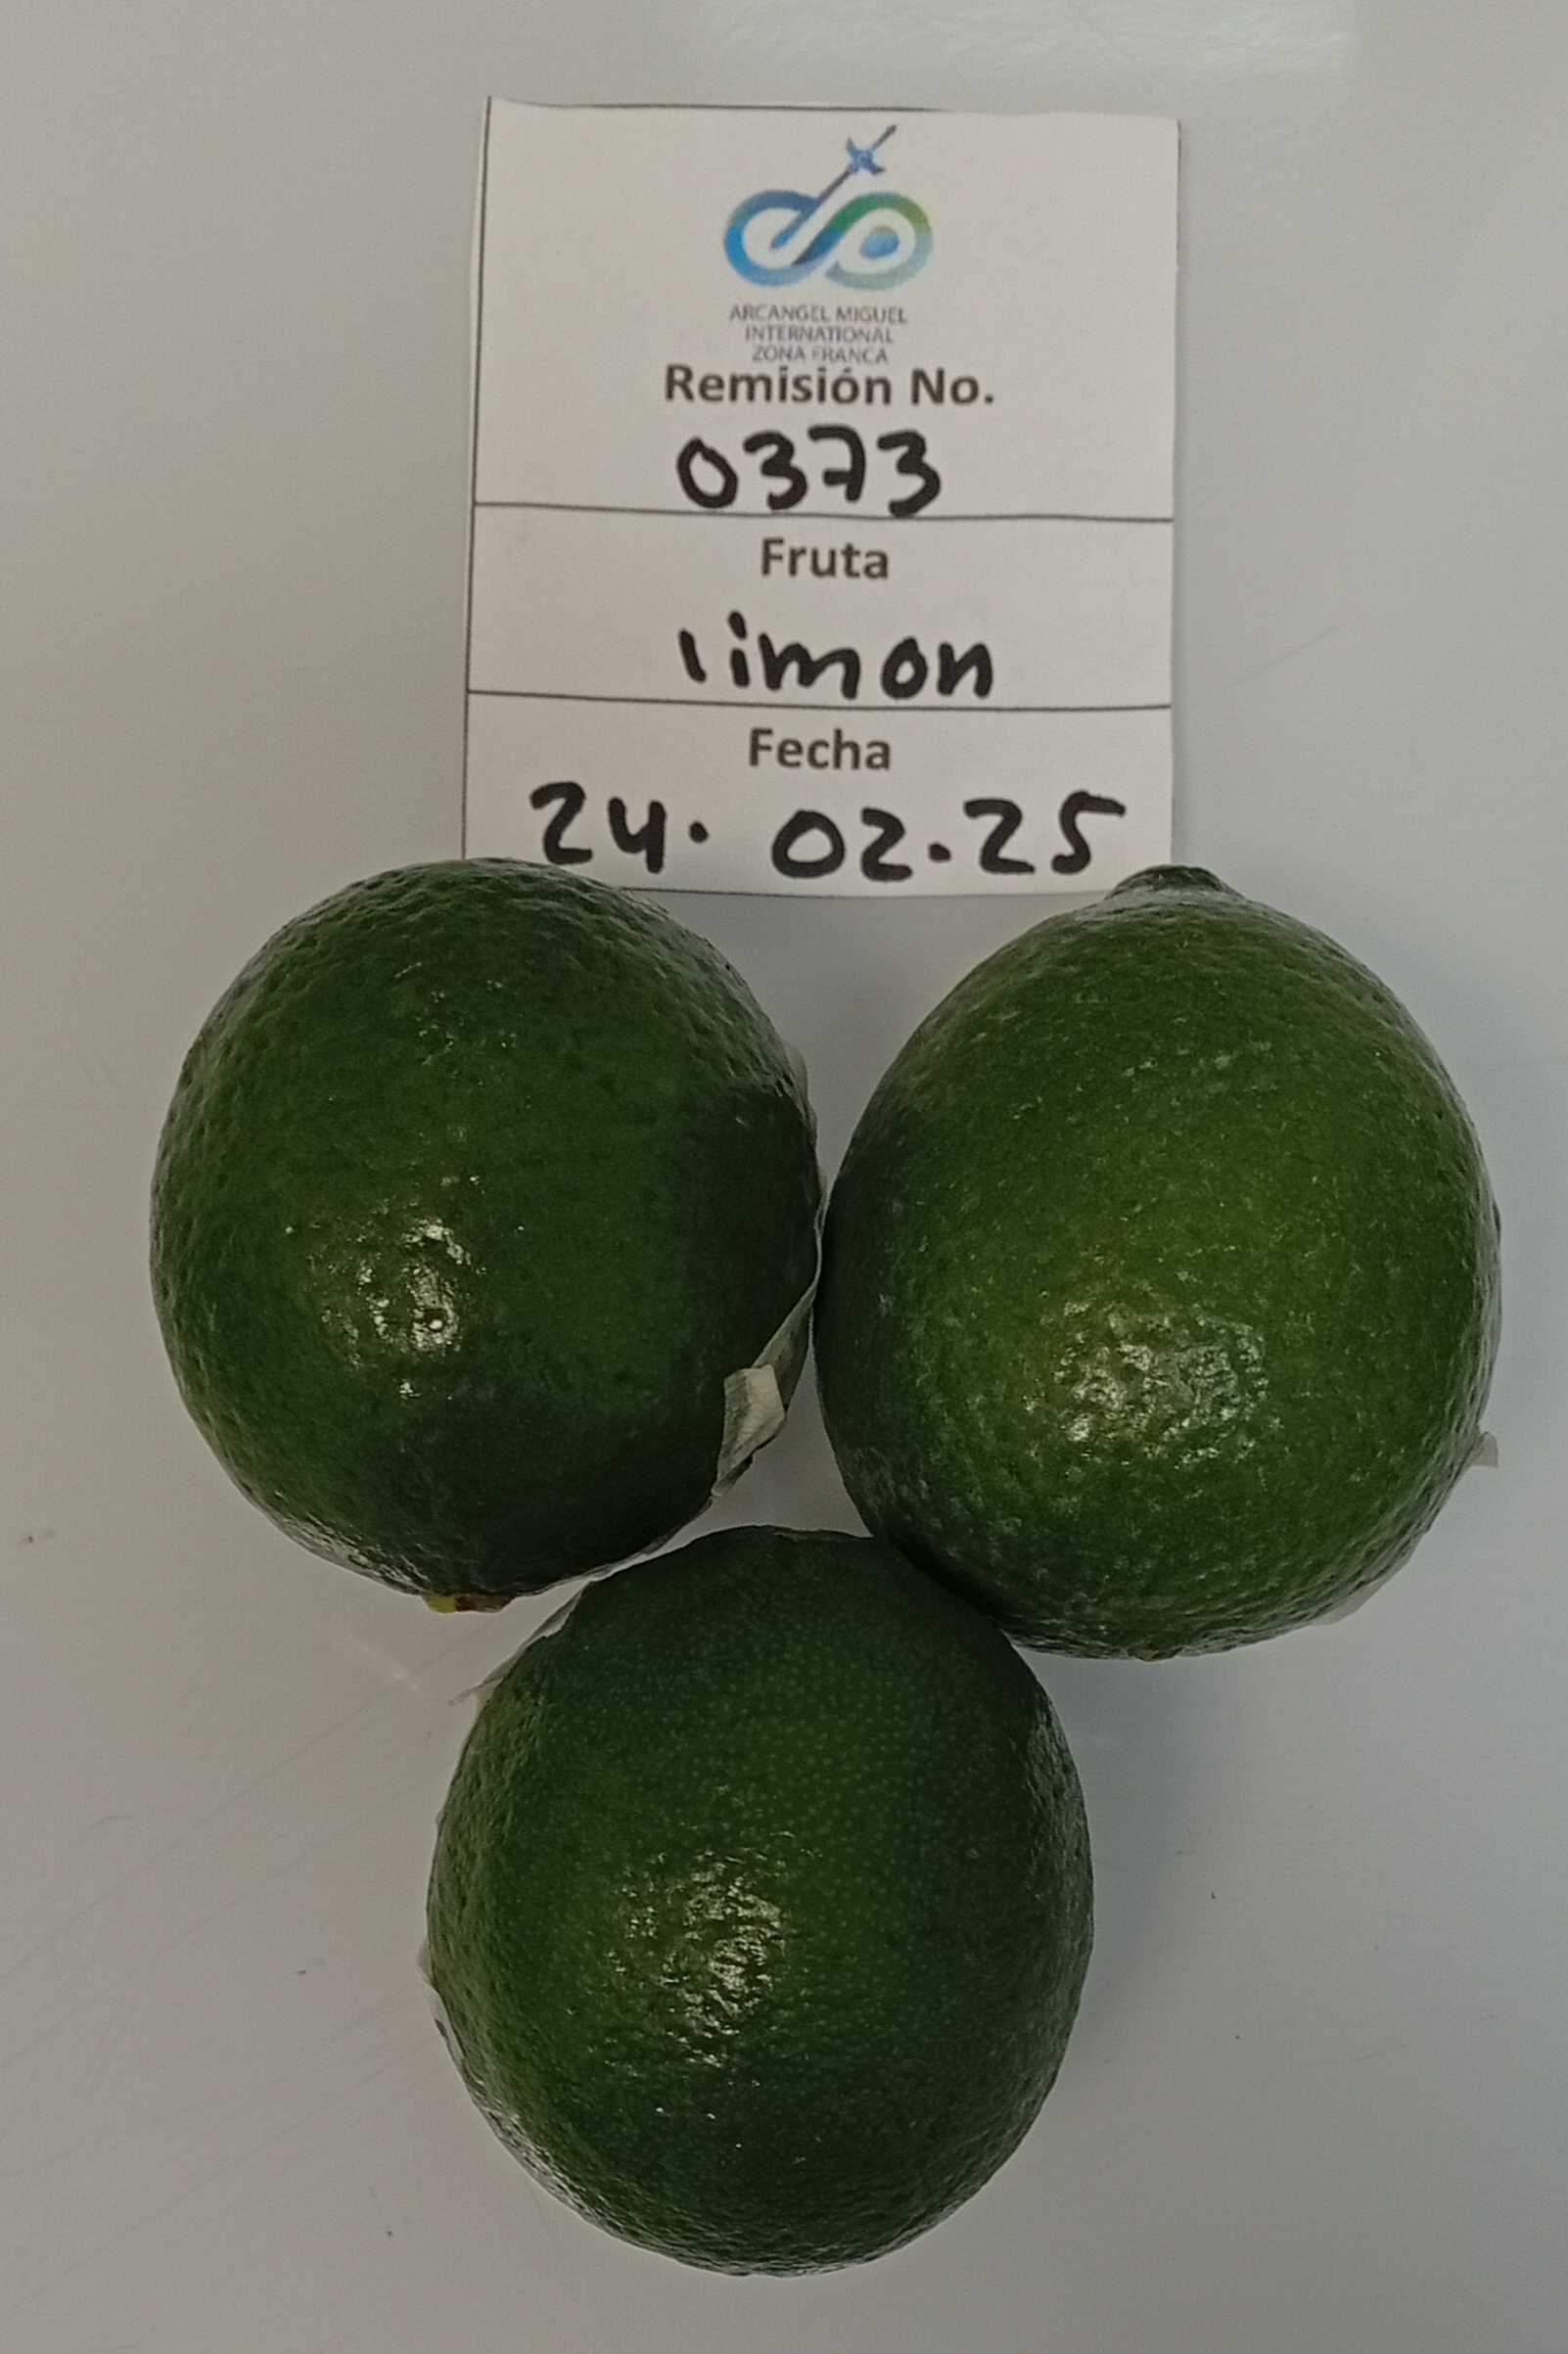 ARCANGEL MIGUEL
INTERNATIONAL
ZONA FRANCA
Remisión No.
0373
Fruta
limon
Fecha
24. 02.25